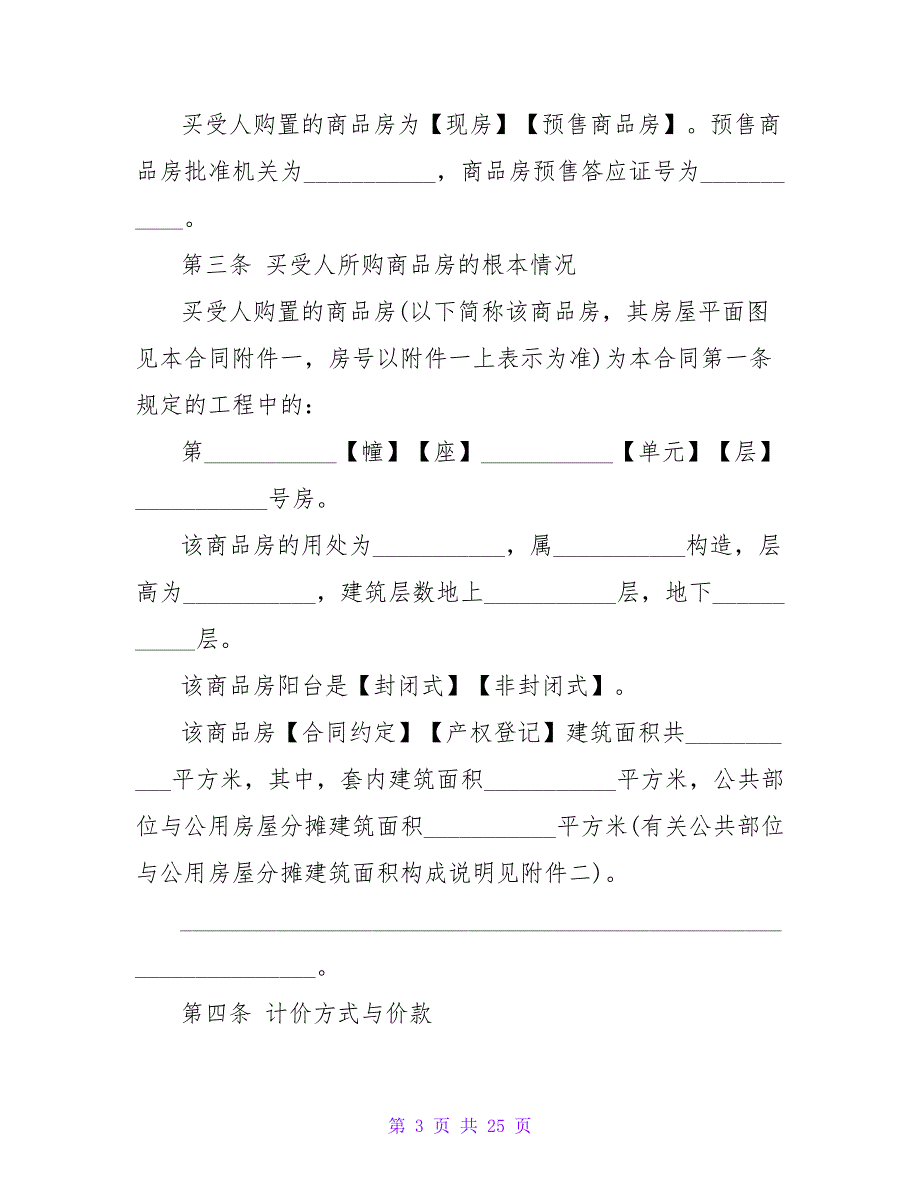 买受人购置的商品房为【现房】【预售商品房】。预售商
品房批准机关为___________，商品房预售答应证号为_______
____。
第三条 买受人所购商品房的根本情况
买受人购置的商品房(以下简称该商品房，其房屋平面图
见本合同附件一，房号以附件一上表示为准)为本合同第一条
规定的工程中的：
第___________【幢】【座】___________【单元】【层】
___________号房。
该商品房的用处为___________，属___________构造，层
高为___________，建筑层数地上___________层，地下______
_____层。
该商品房阳台是【封闭式】【非封闭式】。
该商品房【合同约定】【产权登记】建筑面积共________
___平方米，其中，套内建筑面积___________平方米，公共部
位与公用房屋分摊建筑面积___________平方米(有关公共部位
与公用房屋分摊建筑面积构成说明见附件二)。
__________________________________________________
_______________。
第四条 计价方式与价款
第 3 页 共 25 页